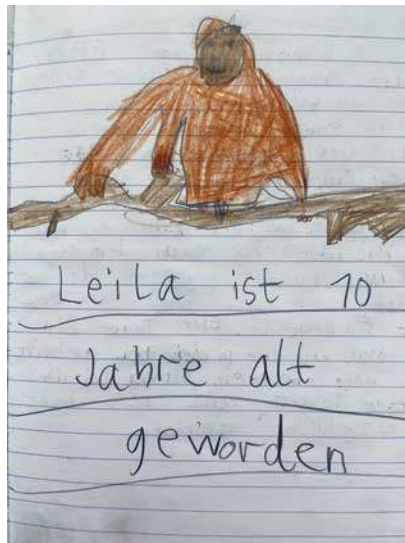 Leila ist 10
Jahre alt
geworden